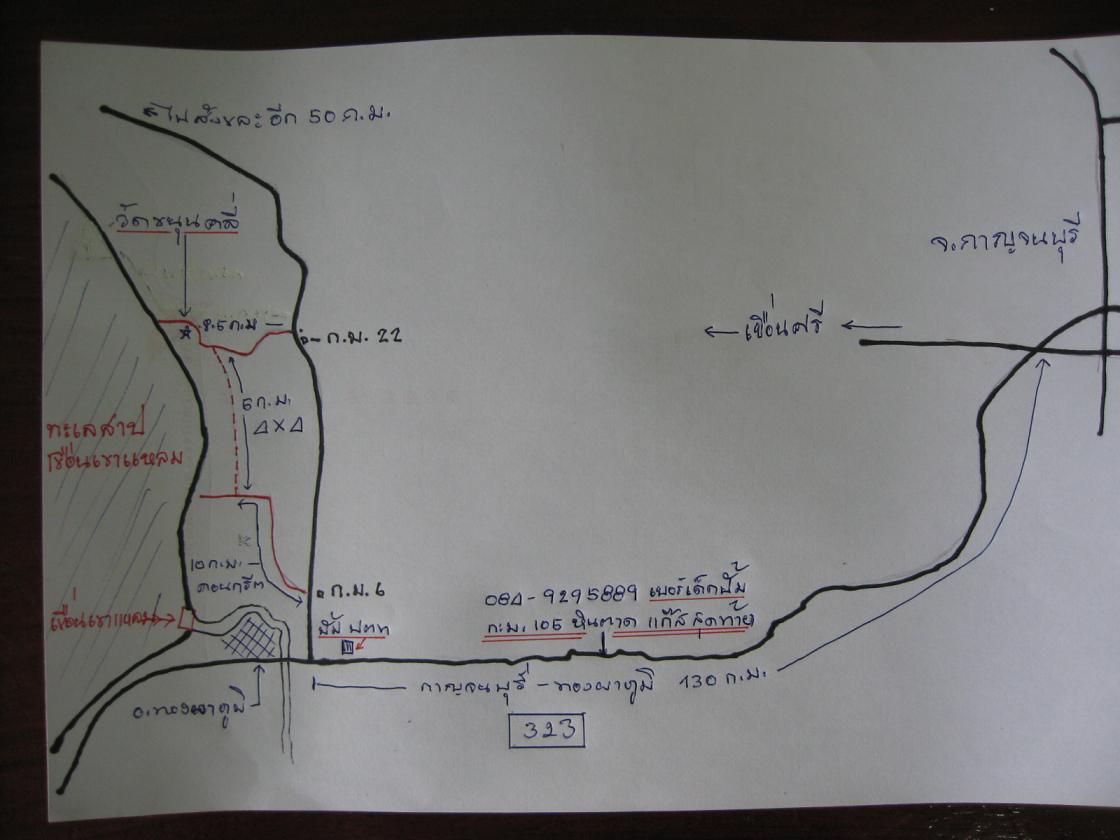 ไปสังขละ อีก 50 ก.ม.
วัดขนุนคลี่
จ.กาญจนบุรี
8.5 ก.ม
ก.ม. 22
เขื่อนศรี
6 ก.ม.
Δ X Δ
ทะเลสาป
เขื่อนเขาแหลม
10 ก.ม.
คอนกรีต
ก.ม. 6
เขื่อนเขาแหลม
ปั้ม ปตท
084-9295889 เบอร์เด็กปั้ม
ก.ม. 105 หินดาด แก๊สสุดท้าย
กาญจนบุรี - ทองผาภูมิ 130 ก.ม.
อ.ทองผาภูมิ
323